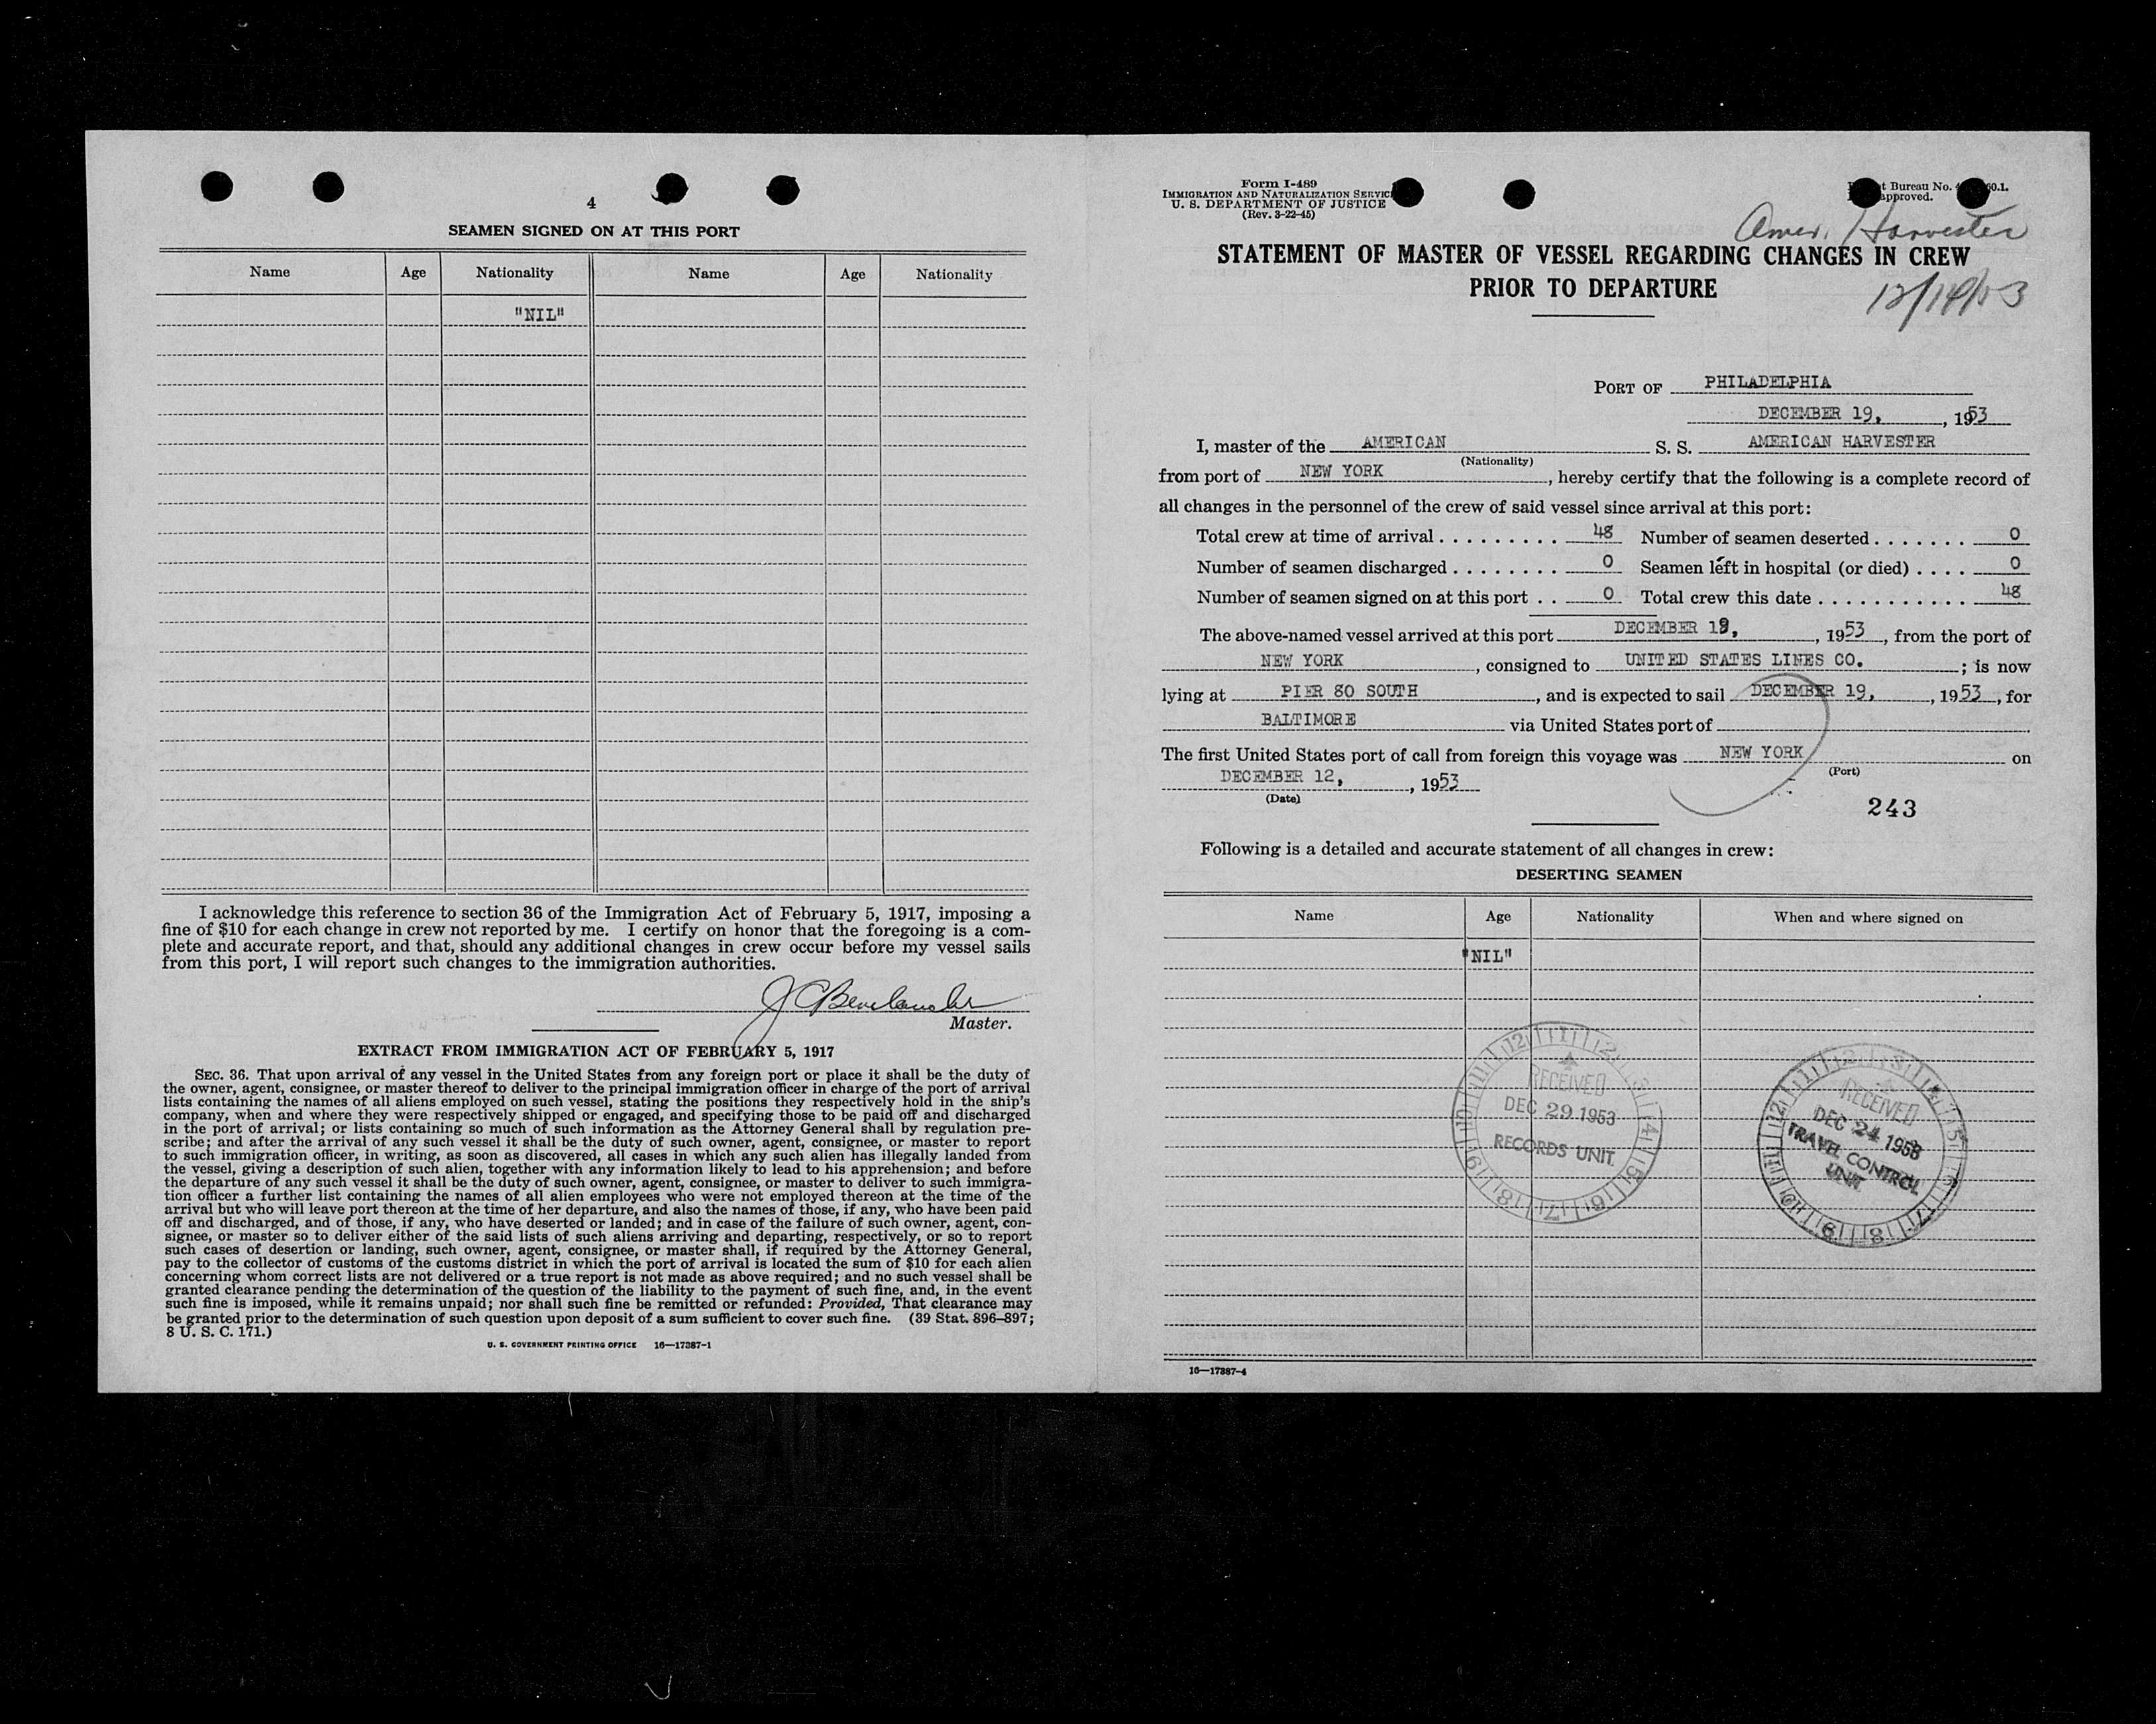 4
SEAMEN SIGNED ON AT THIS PORT
Name Age Nationality Name Age Nationality
"NIL"
I acknowledge this reference to section 36 of the Immigration Act of February 5, 1917, imposing a
fine of $10 for each change in crew not reported by me. I certify on honor that the foregoing is a com-
plete and accurate report, and that, should any additional changes in crew occur before my vessel sails
from this port, I will report such changes to the immigration authorities.
Master.
EXTRACT FROM IMMIGRATION ACT OF FEBRUARY 5, 1917
SEC. 36. That upon arrival of any vessel in the United States from any foreign port or place it shall be the duty of
the owner, agent, consignee, or master thereof to deliver to the principal immigration officer in charge of the port of arrival
lists containing the names of all aliens employed on such vessel, stating the positions they respectively hold in the ship's
company, when and where they were respectively shipped or engaged, and specifying those to be paid off and discharged
in the port of arrival; or lists containing so much of such information as the Attorney General shall by regulation pre-
scribe; and after the arrival of any such vessel it shall be the duty of such owner, agent, consignee, or master to report
to such immigration officer, in writing, as soon as discovered, all cases in which any such alien has illegally landed from
the vessel, giving a description of such alien, together with any information likely to lead to his apprehension; and before
the departure of any such vessel it shall be the duty of such owner, agent, consignee, or master to deliver to such immigra-
tion officer a further list containing the names of all alien employees who were not employed thereon at the time of the
arrival but who will leave port thereon at the time of her departure, and also the names of those, if any, who have been paid
off and discharged, and of those, if any, who have deserted or landed; and in case of the failure of such owner, agent, con-
signee, or master so to deliver either of the said lists of such aliens arriving and departing, respectively, or so to report
such cases of desertion or landing, such owner, agent, consignee, or master shall, if required by the Attorney General,
pay to the collector of customs of the customs district in which the port of arrival is located the sum of $10 for each alien
concerning whom correct lists are not delivered or a true report is not made as above required; and no such vessel shall be
granted clearance pending the determination of the question of the liability to the payment of such fine, and, in the event
such fine is imposed, while it remains unpaid; nor shall such fine be remitted or refunded: Provided, That clearance may
be granted prior to the determination of such question upon deposit of a sum sufficient to cover such fine. (39 Stat. 896–897;
8 U. S. C. 171.)
U. S. GOVERNMENT PRINTING OFFICE 16—17387-1
Form I-489
IMMIGRATION AND NATURALIZATION SERVIC
U. S. DEPARTMENT OF JUSTICE
(Rev. 3-22-45)
t Bureau No. 4 60.1.
approved.
Amer. Harvester
STATEMENT OF MASTER OF VESSEL REGARDING CHANGES IN CREW
PRIOR TO DEPARTURE
12/19/53
PORT OF PHILADELPHIA
DECEMBER 19, , 1953
I, master of the AMERICAN S. S. AMERICAN HARVESTER
(Nationality)
from port of NEW YORK , hereby certify that the following is a complete record of
all changes in the personnel of the crew of said vessel since arrival at this port:
Total crew at time of arrival . . . . . . . . . 48 Number of seamen deserted . . . . . . . 0
Number of seamen discharged . . . . . . . . 0 Seamen left in hospital (or died) . . . . 0
Number of seamen signed on at this port . . 0 Total crew this date . . . . . . . . . . . 48
The above-named vessel arrived at this port DECEMBER 19, , 1953 , from the port of
NEW YORK , consigned to UNITED STATES LINES CO. ; is now
lying at PIER 80 SOUTH , and is expected to sail DECEMBER 19, , 1953 , for
BALTIMORE via United States port of
The first United States port of call from foreign this voyage was NEW YORK on
(Port)
DECEMBER 12, , 1953
(Date)
243
Following is a detailed and accurate statement of all changes in crew:
DESERTING SEAMEN
Name Age Nationality When and where signed on
"NIL"
RECEIVED
DEC 29 1953
RECORDS UNIT
RECEIVED
DEC 24 1953
TRAVEL CONTROL
UNIT
16—17387-4